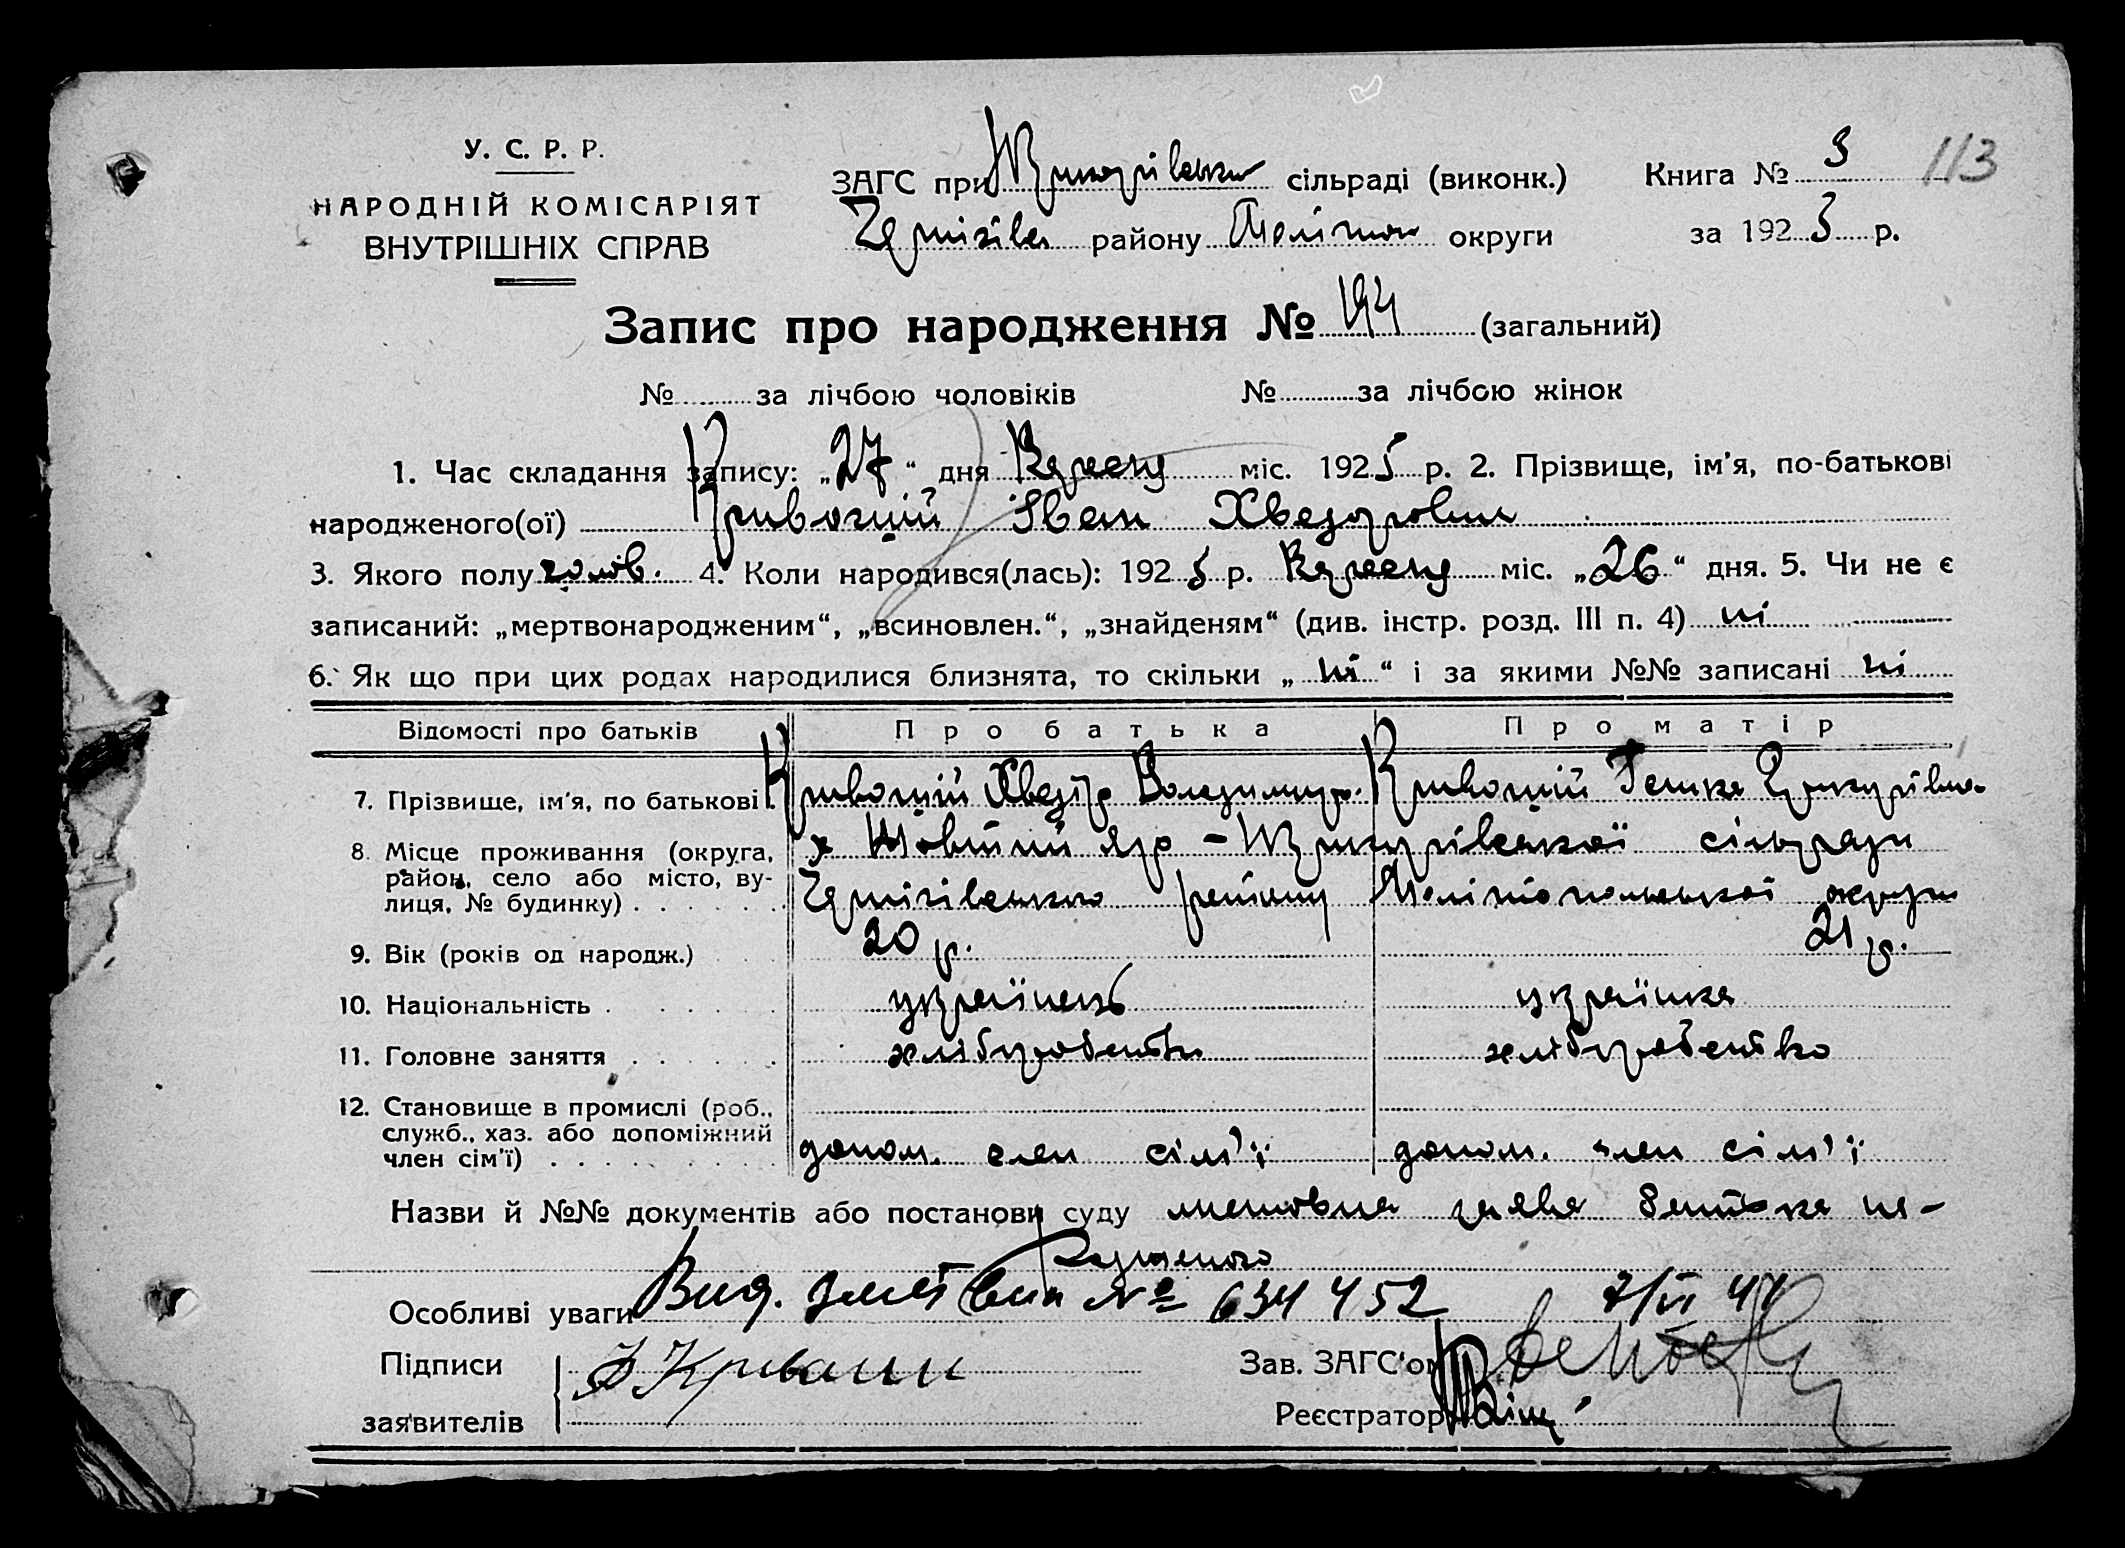 У. С. Р. Р.
НАРОДНІЙ КОМІСАРІЯТ
ВНУТРІШНІХ СПРАВ
ЗАГС при сільраді (виконк.)
Чернігів району Мелітоп округи
Книга № 3 113
за 192 5 р.
Запис про народження № 194 (загальний)
№ за лічбою чоловіків № за лічбою жінок
1. Час складання запису: „27“ дня Вересня міс. 192 5 р. 2. Прізвище, ім'я, по-батькові
народженого(ої) Кривоший Іван Хведорович
3. Якого полу чолов. 4. Коли народився(лась): 192 5 р. Вересня міс. „26“ дня. 5. Чи не є
записаний: „мертвонародженим“, „всиновлен.“, „знайденям“ (див. інстр. розд. III п. 4) ні
6. Як що при цих родах народилися близнята, то скільки „ ні “ і за якими №№ записані ні
Відомості про батьків Про батька Про матір
7. Прізвище, ім'я, по батькові Кривоший Хведір Володимир. Кривоший Ганна Григорівна
8. Місце проживання (округа, район, село або місто, вулиця, № будинку) х Яр - сільради
Чернігівського району Мелітопольської округи
9. Вік (років од народж.) 20 р. 21 р.
10. Національність українець українка
11. Головне заняття хліборобство хліборобство
12. Становище в промислі (роб., служб., хаз. або допоміжний член сім'ї) допом. член сім'ї допом. член сім'ї
Назви й №№ документів або постанови суду заява батька на-
родженого
Особливі уваги Вид. № 634452 7/VI 44
Підписи
заявителів
Зав. ЗАГС'ом
Реєстратор